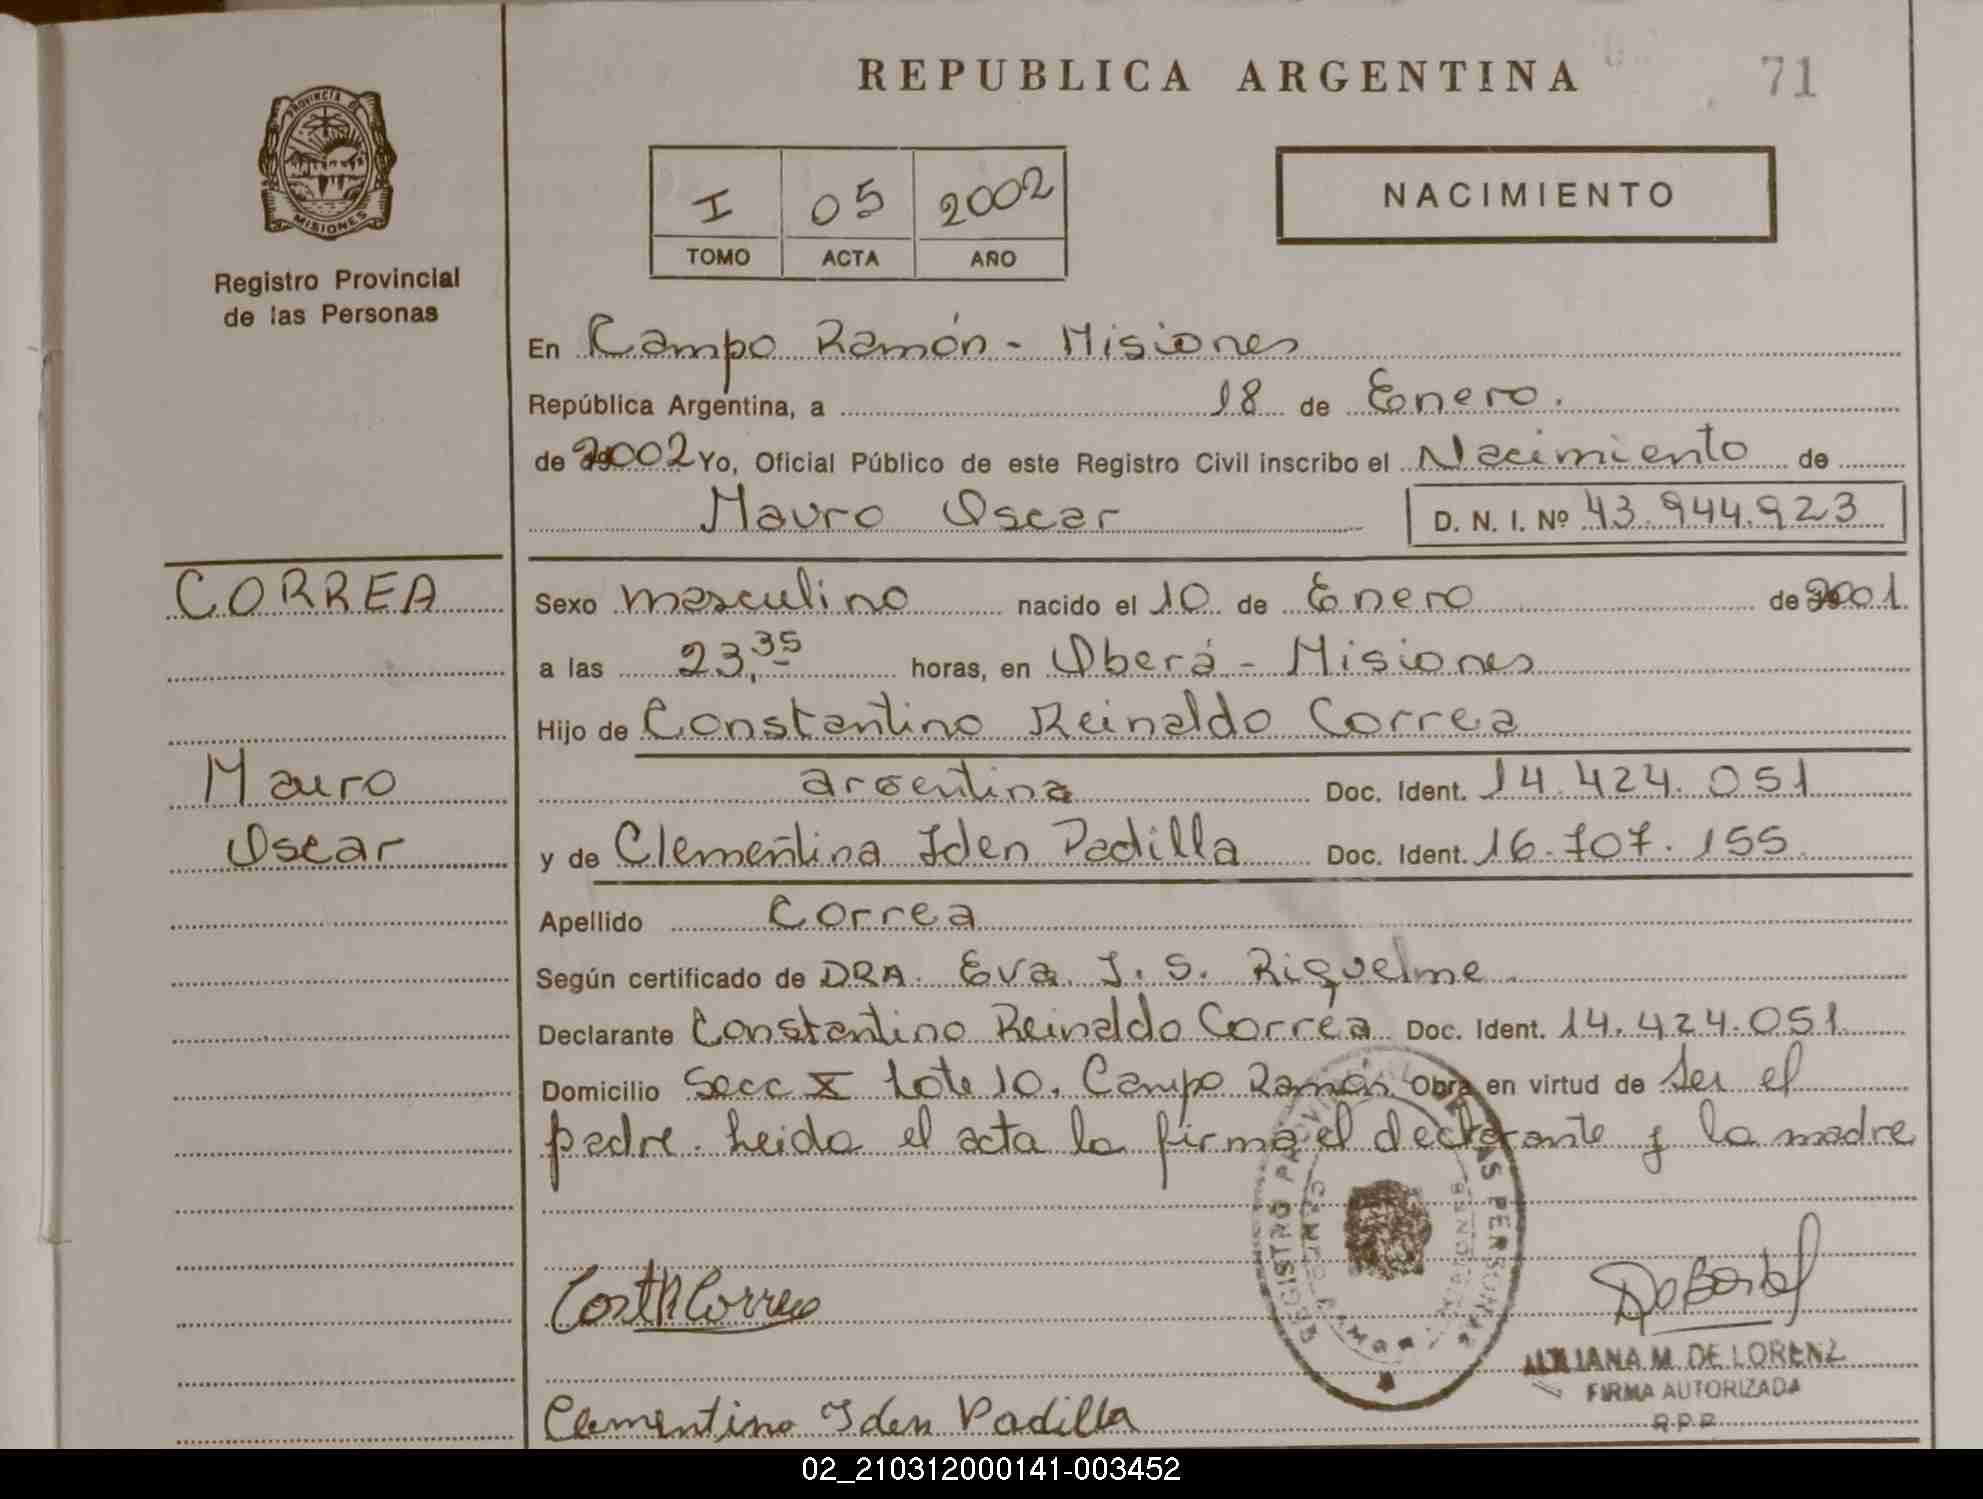 REPUBLICA ARGENTINA
71
PROVINCIA DE
MISIONES
Registro Provincial
de las Personas
I 05 2002
TOMO ACTA AÑO
NACIMIENTO
En Campo Ramón - Misiones
República Argentina, a 18 de Enero.
de 2002 Yo, Oficial Público de este Registro Civil inscribo el Nacimiento de
Mauro Oscar D. N. I. Nº 43.944.923
CORREA
Mauro
Oscar
Sexo masculino nacido el 10 de Enero de 2001
a las 23,35 horas, en Oberá - Misiones
Hijo de Constantino Reinaldo Correa
argentina Doc. Ident. 14.424.051
y de Clementina Iden Padilla Doc. Ident. 16.707.155
Apellido Correa
Según certificado de DRA. Eva J. S. Riquelme
Declarante Constantino Reinaldo Correa Doc. Ident. 14.424.051
Domicilio Secc X lote 10. Campo Ramón Obra en virtud de ser el
padre. Leida el acta la firma el declarante y la madre
REGISTRO PROVINCIAL DE LAS PERSONAS
MISIONES
Const R Correa
Clementina Iden Padilla
LILIANA M. DE LORENZ
FIRMA AUTORIZADA
R.P.P.
02_210312000141-003452